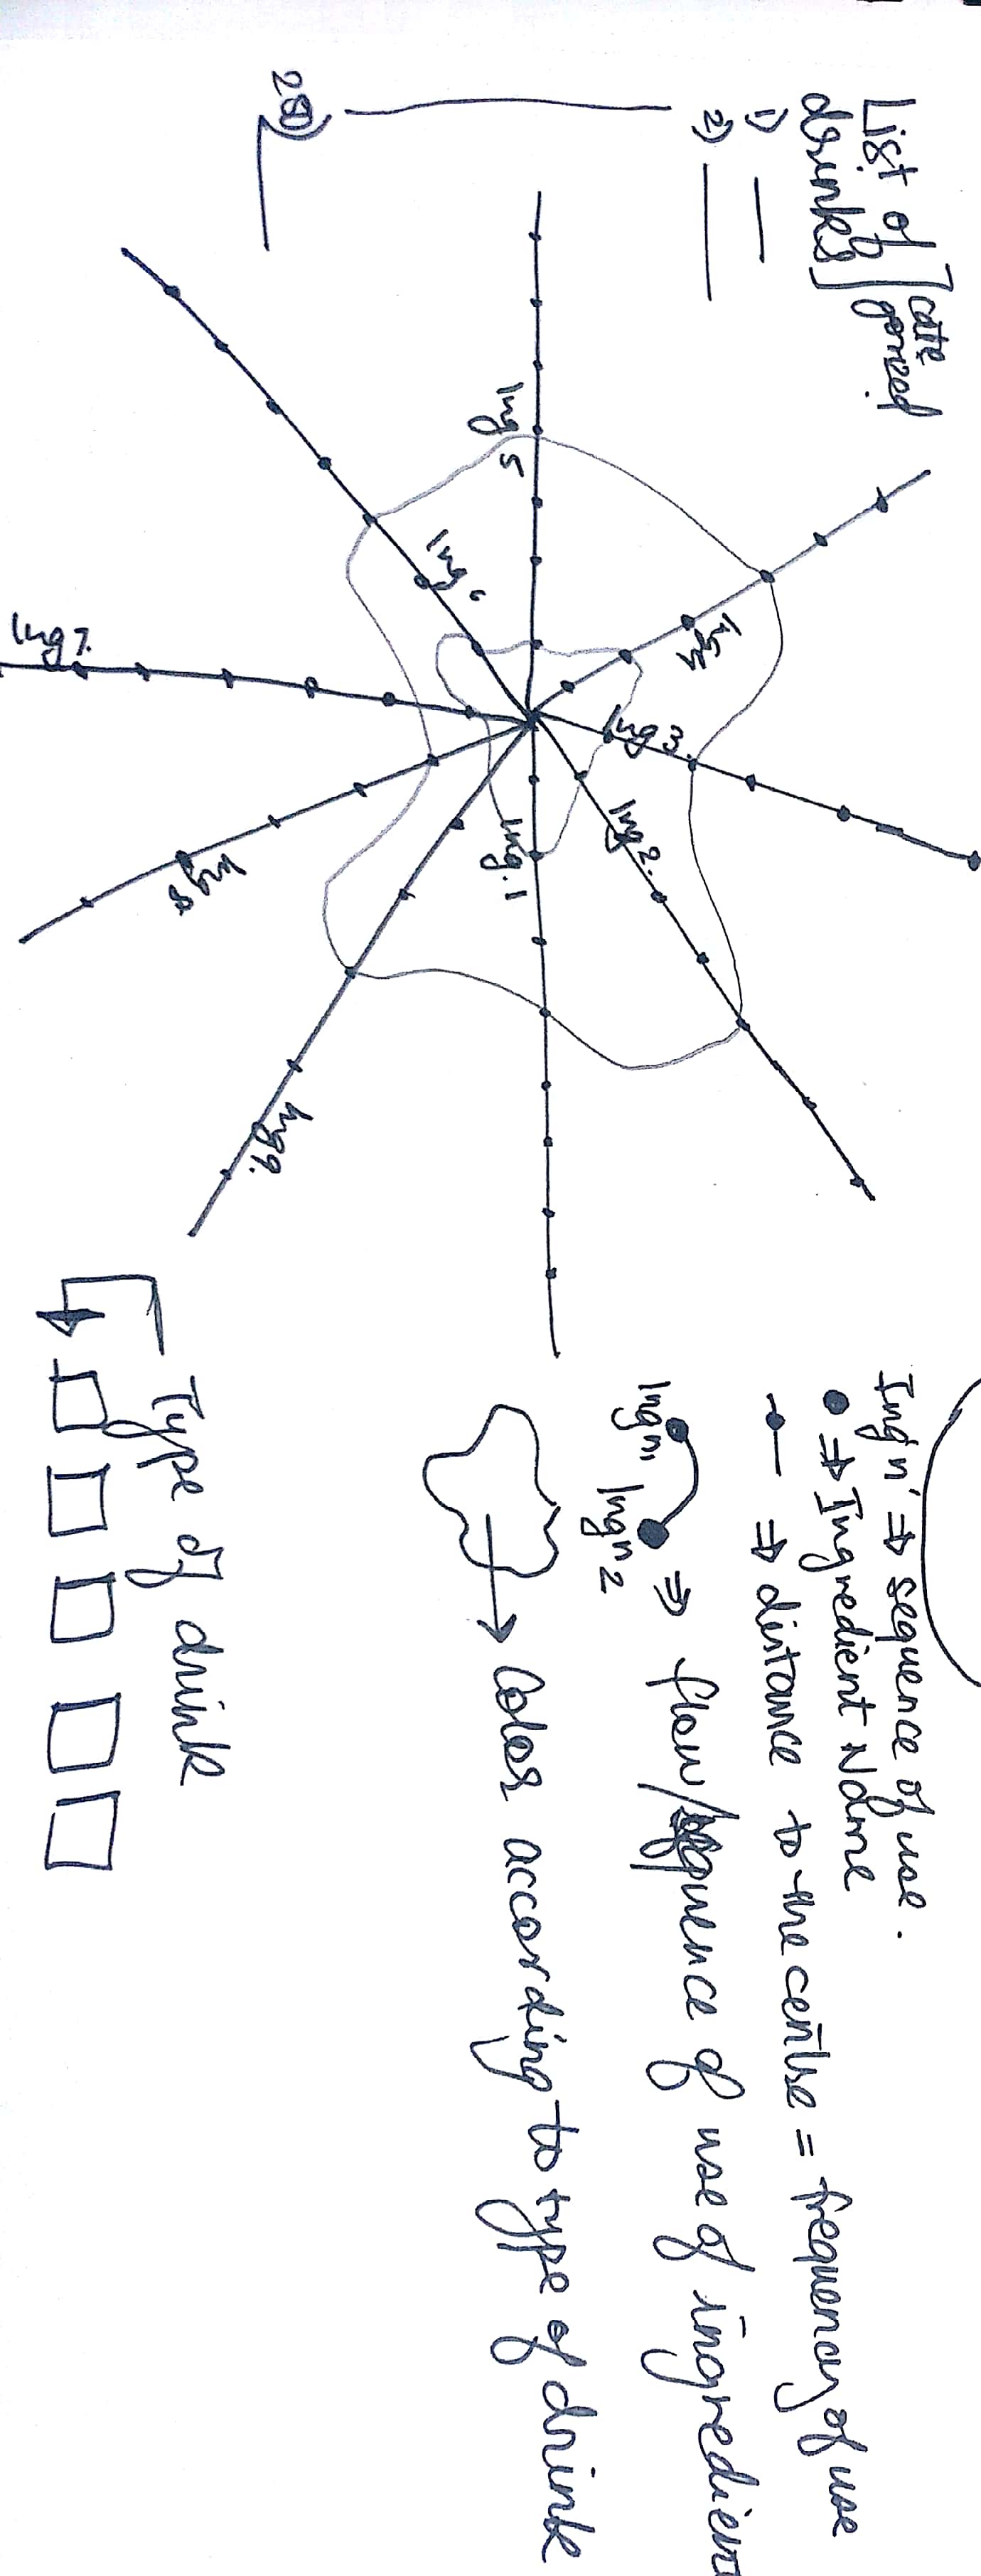 List of
drinks
cate
gorized
1)
2)
Ing 5
Ing 3.
Ing 2.
Ing. 1
Ing 6
Ing 7.
Ing 8.
Ing 9.
Ing 'n' ⇒ sequence of use.
⇒ Ingredient Name
⇒ distance to the centre = frequency of use
Ing n1 Ing n2 ⇒ flow/sequence of use of ingredient
Color according to type of drink
Type of drink